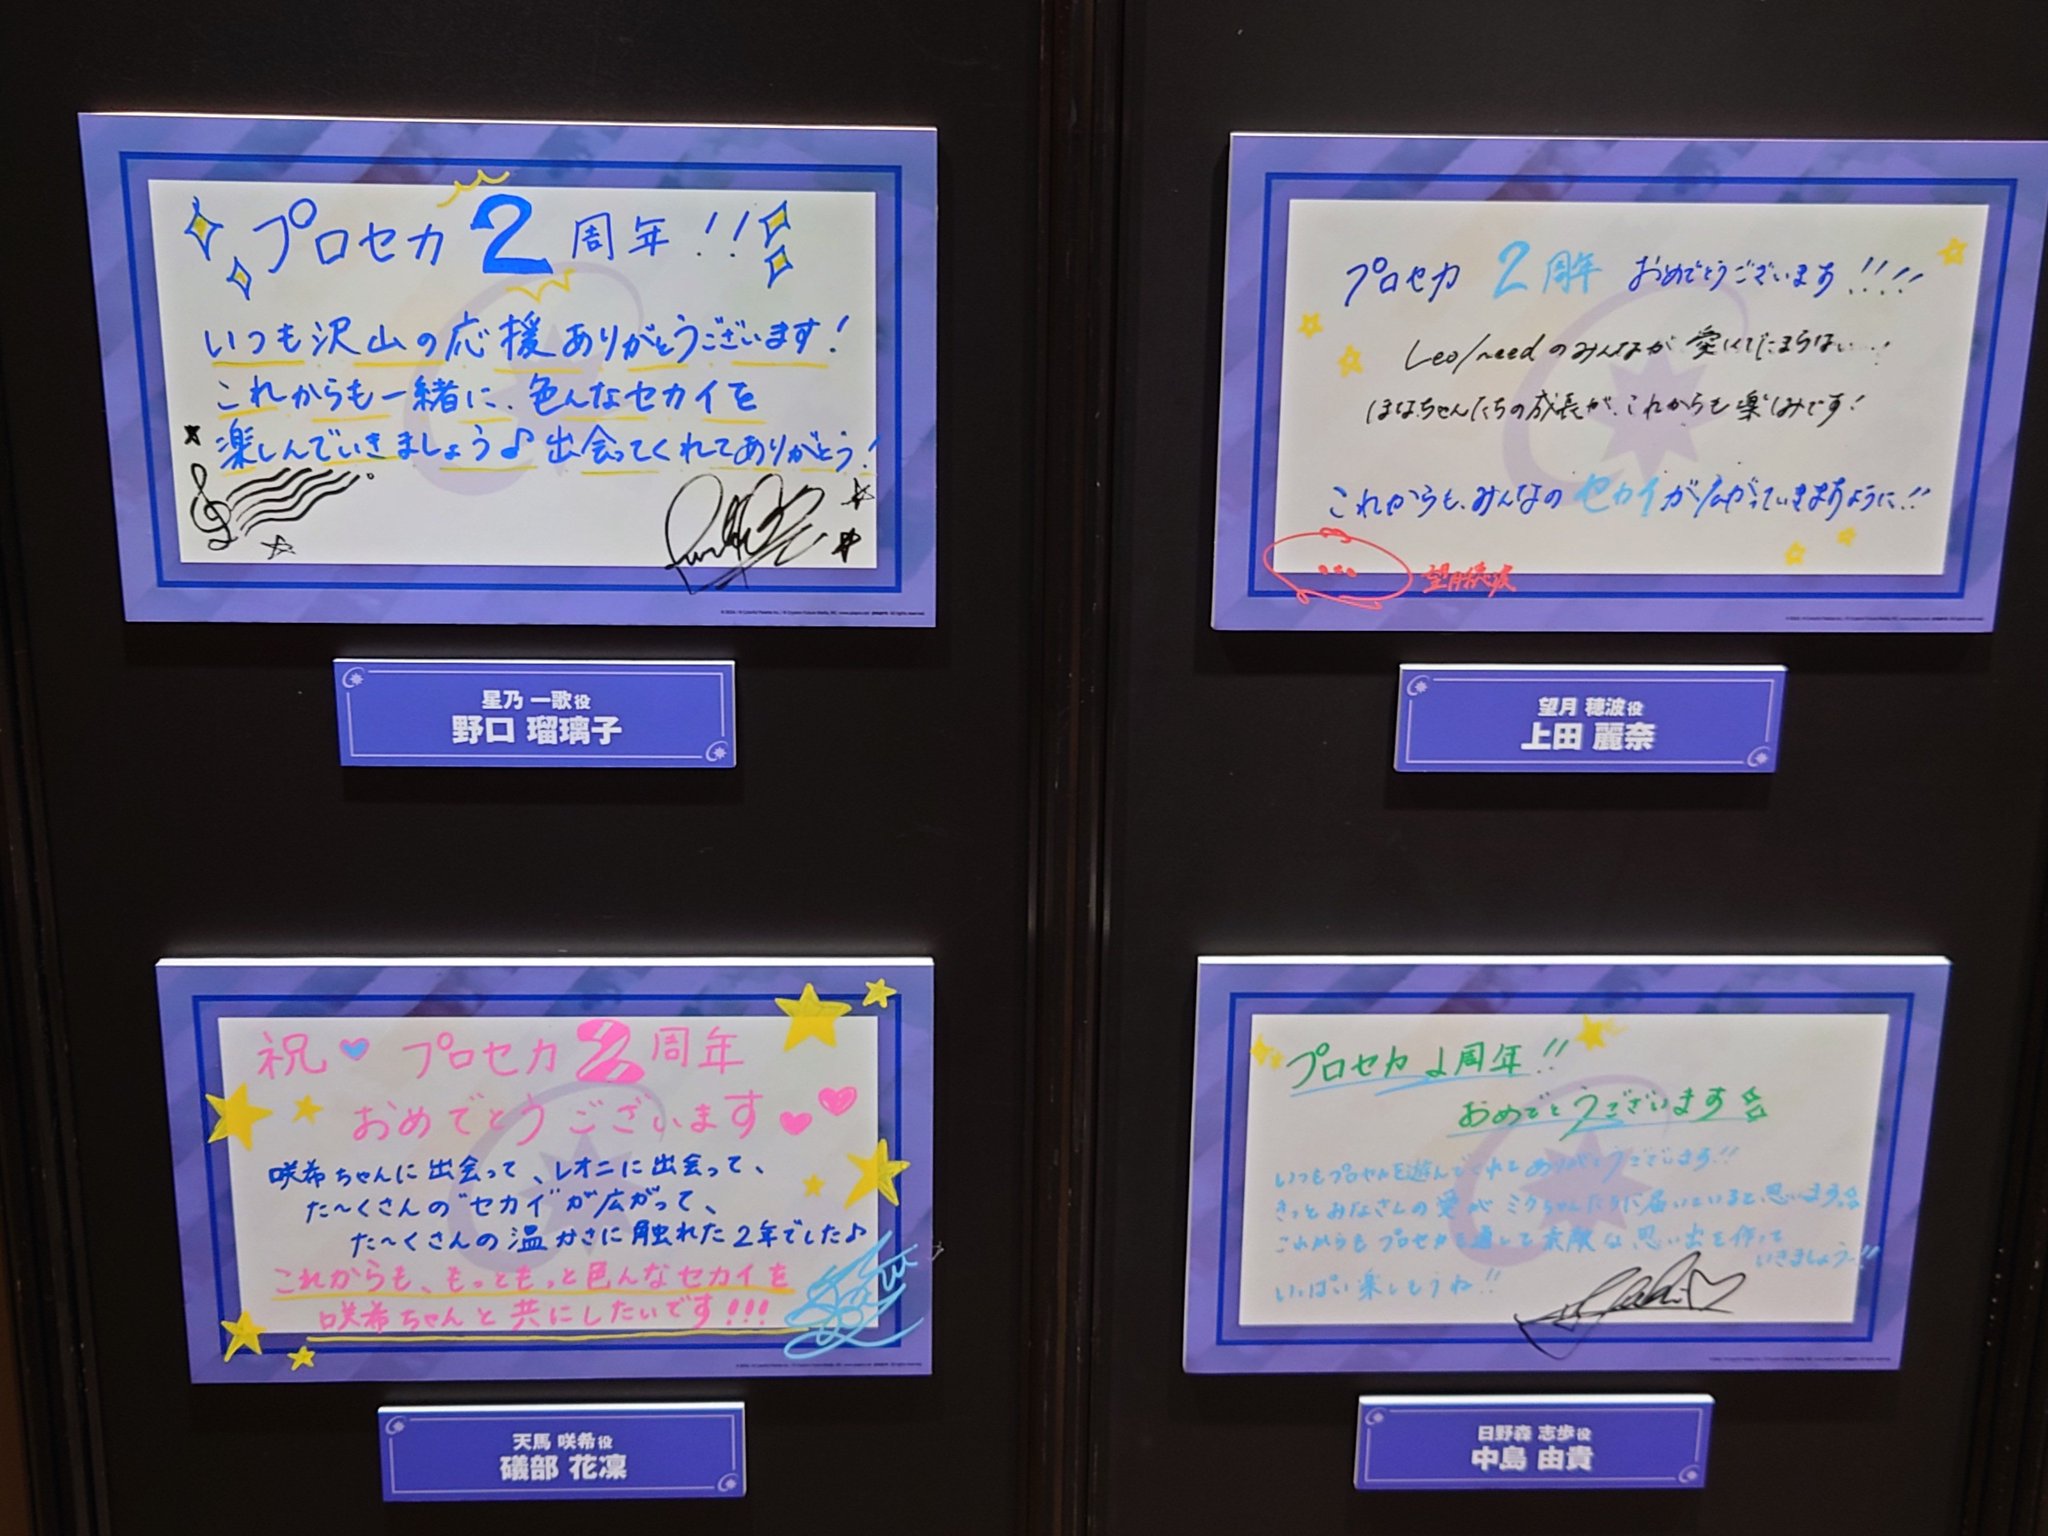 プロセカ2周年!!
いつも沢山の応援ありがとうございます!
これからも一緒に、色んなセカイを
楽しんでいきましょう♪出会ってくれてありがとう!
星乃 一歌役
野口 瑠璃子
プロセカ 2周年 おめでとうございます!!!!
Leo/needのみんなが愛しくてたまらない…!
ほなちゃんたちの成長が、これからも楽しみです!
これからも、みんなのセカイが広がっていきますように!!
望月穂波
望月 穂波役
上田 麗奈
祝♥プロセカ2周年
おめでとうございます♥♥
咲希ちゃんに出会って、レオニに出会って、
た〜くさんの"セカイ"が広がって、
た〜くさんの温かさに触れた2年でした♪
これからも、もっともっと色んなセカイを
咲希ちゃんと共にしたいです!!!
天馬 咲希役
礒部 花凜
プロセカ 周年!!
おめでとうございます☆
いつもプロセカを遊んでくれてありがとうございます!!
きっとみなさんの愛がミクちゃんたちに届いていると思います☆
これからもプロセカを通して素敵な思い出を作って
いきましょう!!
いっぱい楽しもうね!!
日野森 志歩役
中島 由貴